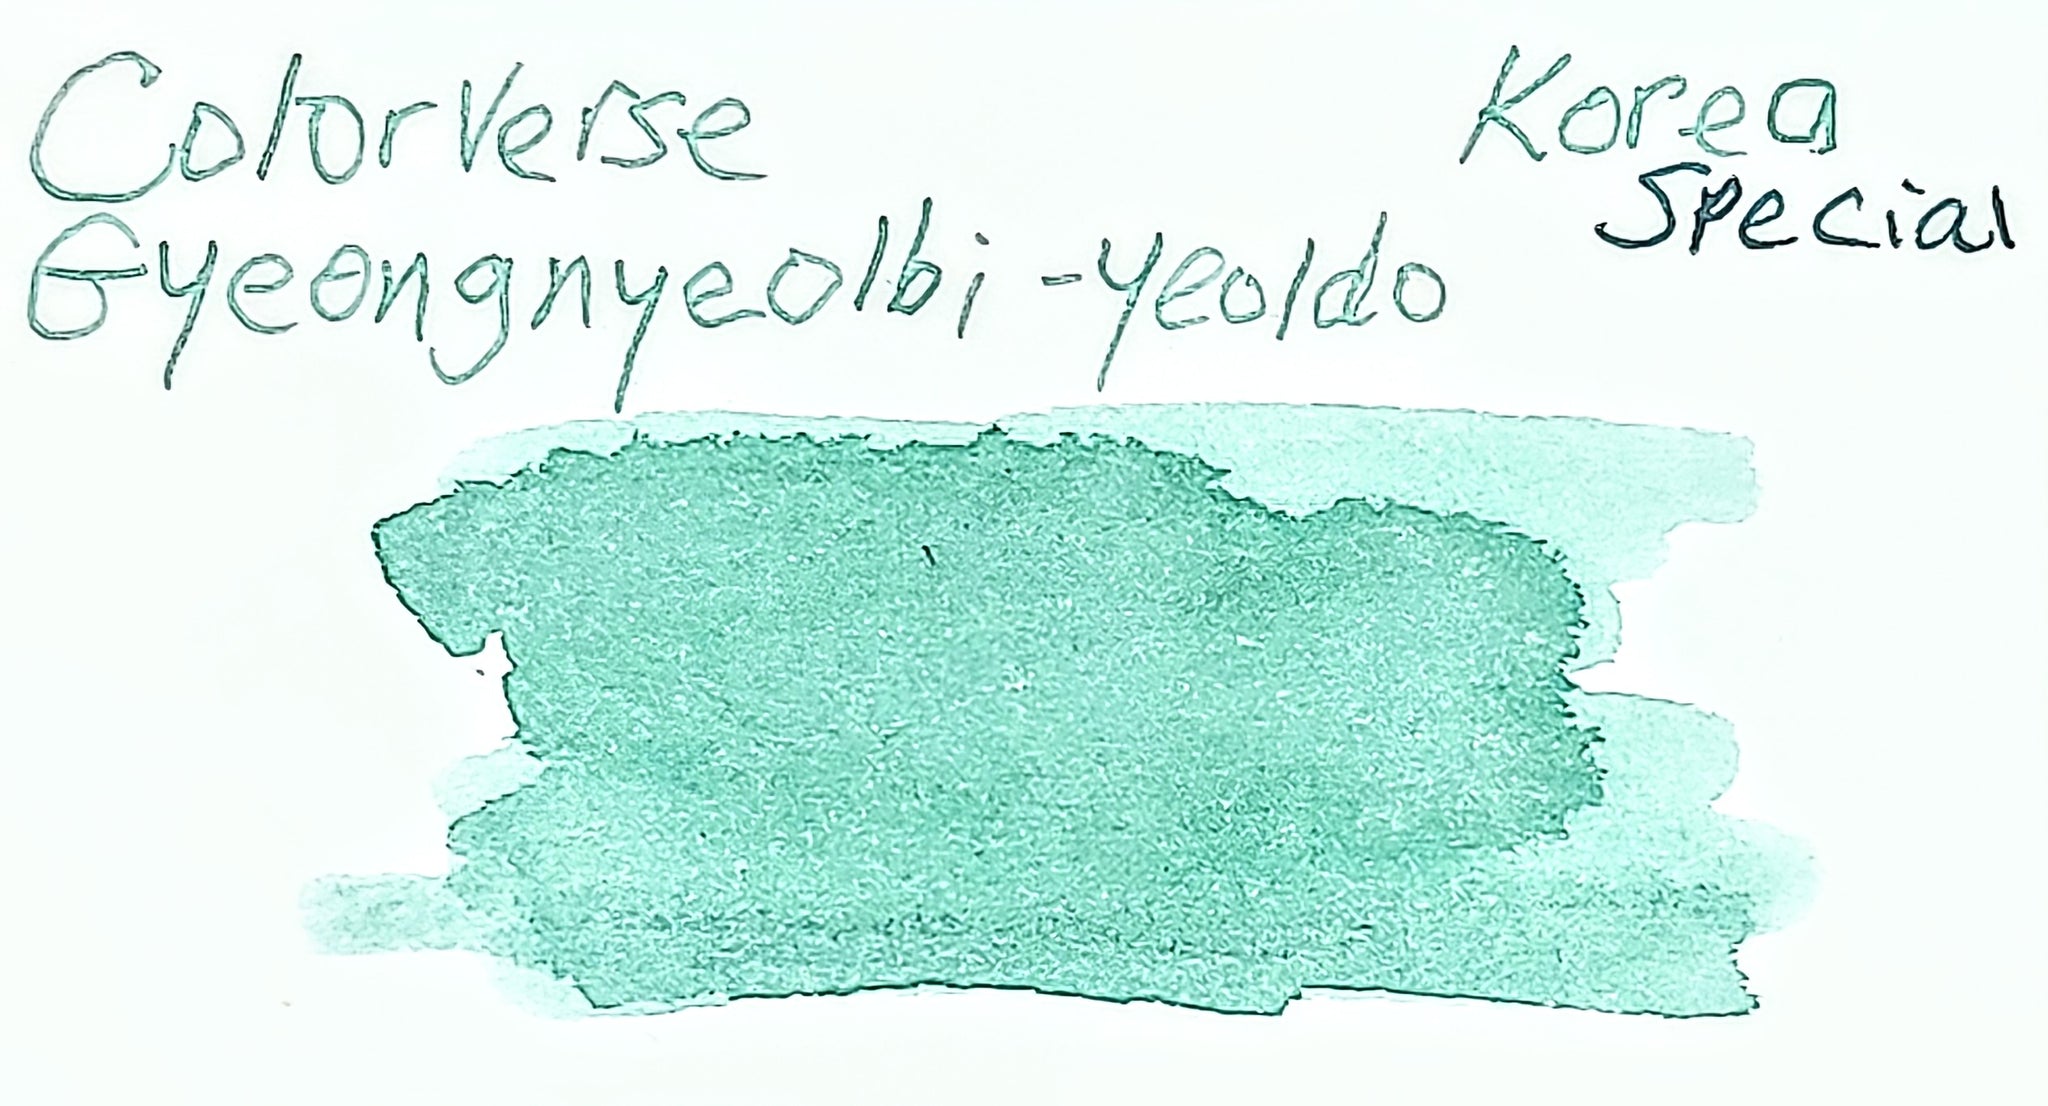 ColorVerse
Gyeongnyeolbi-yeoldo
Korea
Special